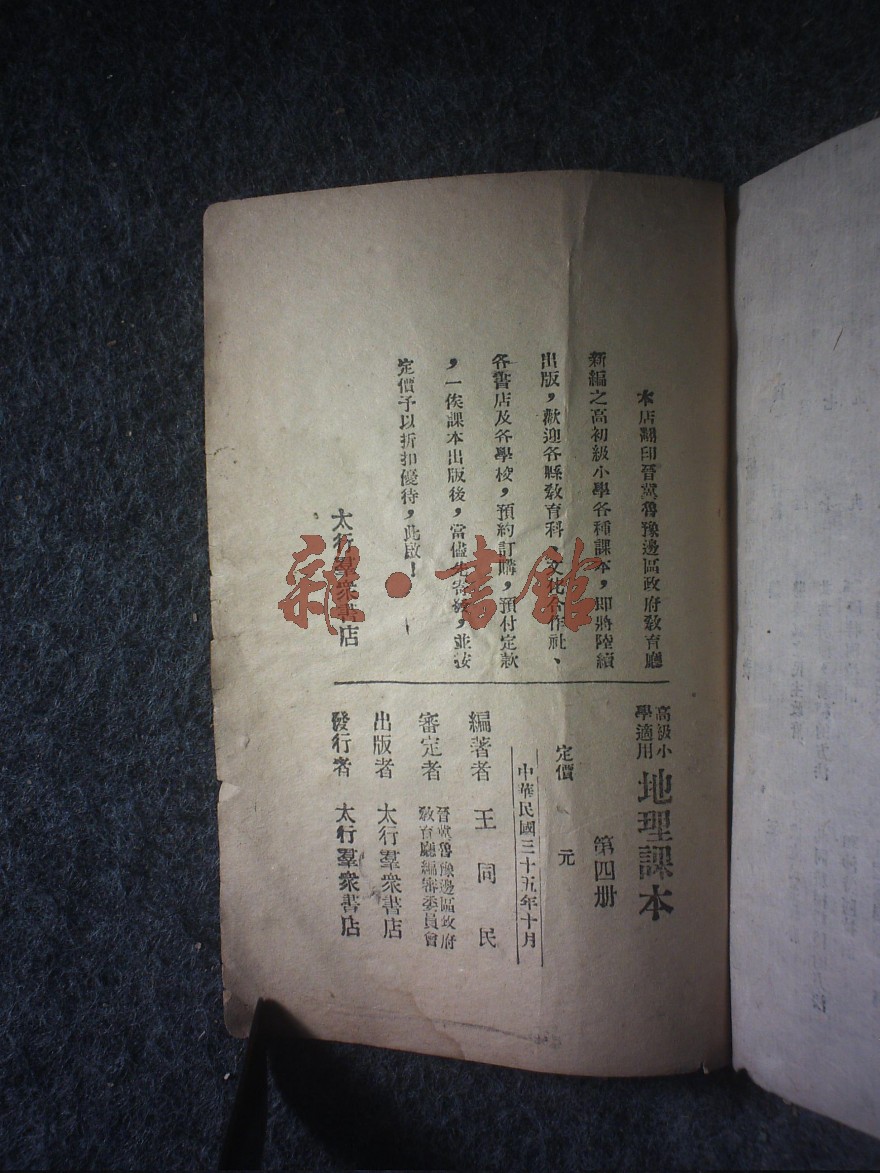 本店翻印晉冀魯豫邊區政府敎育廳
新編之高初級小學各種課本，卽將陸續
出版，歡迎各縣敎育科、文化合作社、
各書店及各學校，預約訂購，預付定款
，一俟課本出版後，當儘先寄發，並按
定價予以折扣優待，此啟！
太行羣衆書店
高級小
學適用
地理課本
第四册
定價 元
中華民國三十五年十月
編著者 王同民
審定者 晉冀魯豫邊區政府
敎育廳編審委員會
出版者 太行羣衆書店
發行者 太行羣衆書店
雜·書館